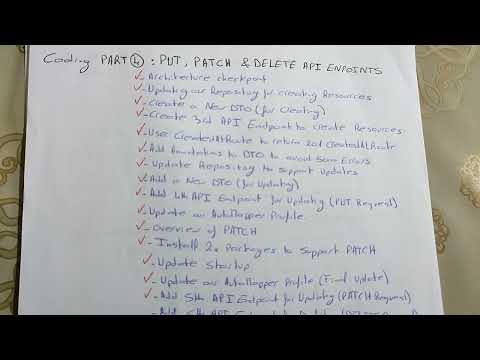 Coding PART 4 : PUT, PATCH & DELETE API ENPOINTS
✓ - Architecture checkpoint
✓ - Updating our Repository for creating Resources
✓ - Create a New DTO (for Creating)
✓ - Create 3rd API Endpoint to create Resources
✓ - User CreatedAtRoute to return 201 CreatedAtRoute
✓ - Add Annotations to DTO to avoid 500 Errors
✓ - Update Repository to support updates
✓ - Add a New DTO (for Updating)
✓ - Add 4th API Endpoint for Updating (PUT Request)
✓ - Update our AutoMapper Profile
✓ - Overview of PATCH
✓ - Install 2x Packages to Support PATCH
✓ - Update Startup
✓ - Update our AutoMapper Profile (Final Update)
✓ - Add 5th API Endpoint for Updating (PATCH Request)
✓ - Add 6th API